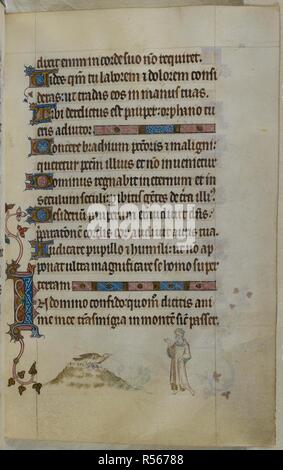 dixit enim in corde suo no requiret.
Uides qm tu laborem & dolorem consi
deras: ut tradas eos in manus tuas.
Tibi derelictus est pauper: orphano tu
eris adiutor.
Contere brachium pctoris & maligni:
queretur pctm illius et no inuenietur
Dominus regnabit in eternum et in
seculum seculi: pibitis gentes de tra illi
Desiderium pauperum exaudiuit dns:
paratonem cordis eor audiuit auris tua.
Iudicare pupillo & humili: ut no ap
ponat ultra magnificare se homo super
terram.
In domino confido: quom dicitis ani
me mee transmigra in monte sic passer.
alamy
Image ID: R56788
www.alamy.com